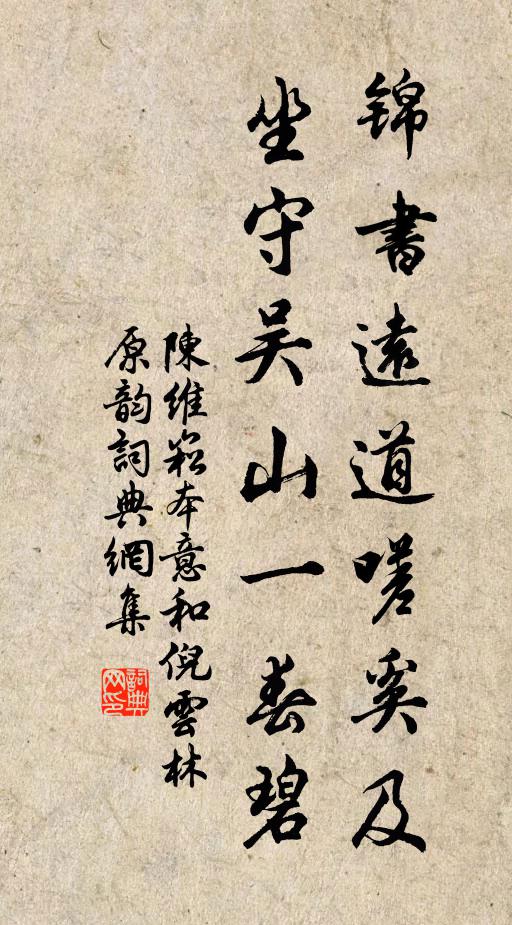 錦書遠道嗟奚及
坐守吴山一春碧
陳維崧本意和倪雲林
原韵詞典網集
詞典网印